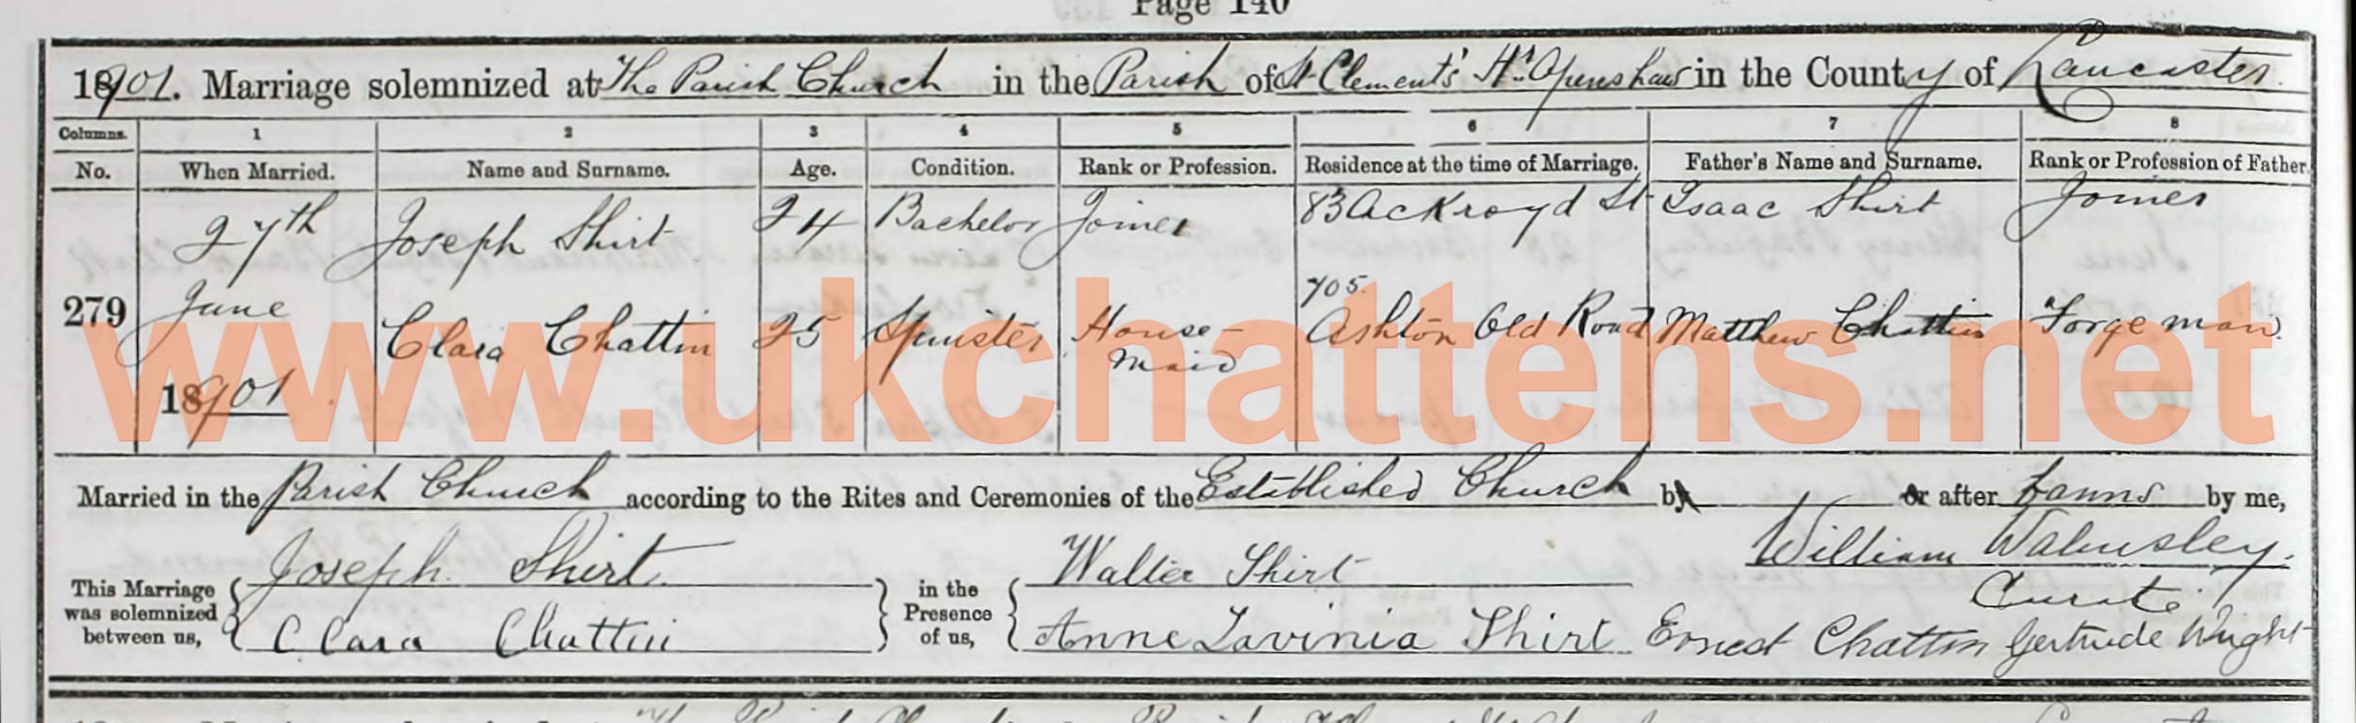 Page 140
1901. Marriage solemnized at The Parish Church in the Parish of St Clement's Hr. Openshaw in the County of Lancaster.
Columns. 1 2 3 4 5 6 7 8
No. When Married. Name and Surname. Age. Condition. Rank or Profession. Residence at the time of Marriage. Father's Name and Surname. Rank or Profession of Father.
27th Joseph Shirt 24 Bachelor Joiner 83 Ackroyd St Isaac Shirt Joiner
279 June Clara Chattin 25 Spinster House- 705 Ashton Old Road Matthew Chattin Forge man
maid
1901
www.ukchattens.net
Married in the Parish Church according to the Rites and Ceremonies of the Established Church by or after banns by me,
William Walmsley.
Curate
This Marriage was solemnized between us, Joseph Shirt Clara Chattin
in the Presence of us, Walter Shirt Anne Lavinia Shirt Ernest Chattin Gertrude Wright